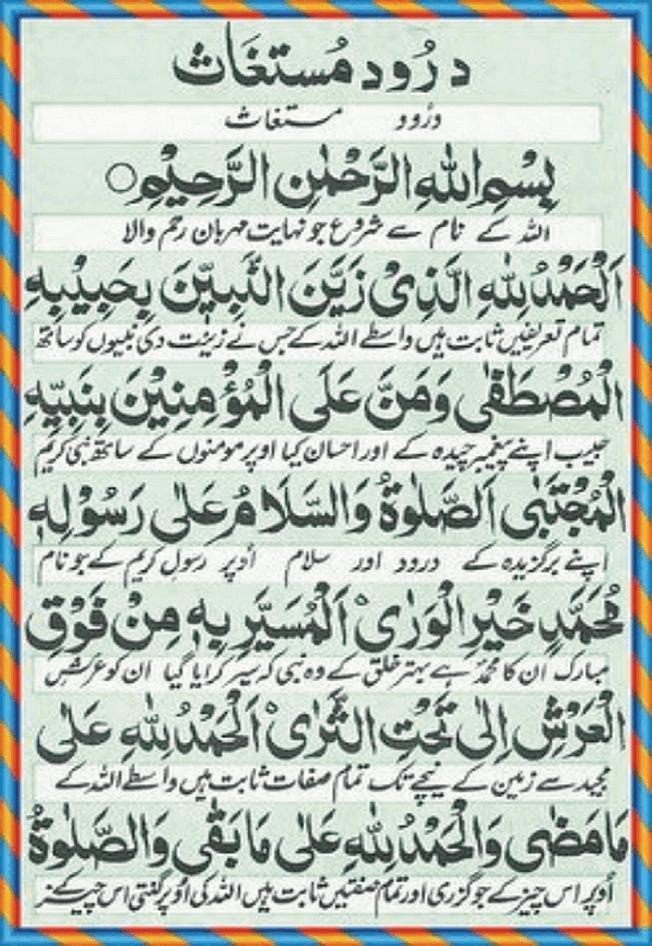 دُرُود مُستغاث
درُود مستغاث
بِسْمِ اللهِ الرَّحْمٰنِ الرَّحِيْمِ ○
اللہ کے نام سے شروع جو نہایت مہربان رحم والا
اَلْحَمْدُ لِلّٰهِ الَّذِىْ زَيَّنَ النَّبِيّٖنَ بِحَبِيْبِهِ
تمام تعریفیں ثابت ہیں واسطے اللہ کے جس نے زینت دی نبیوں کو ساتھ
الْمُصْطَفٰى وَمَنَّ عَلَى الْمُؤْمِنِيْنَ بِنَبِيِّهِ
حبیب اپنے پیغمبر چیدہ کے اور احسان کیا اوپر مومنوں کے ساتھ نبی کریم
الْمُجْتَبٰى اَلصَّلٰوةُ وَالسَّلَامُ عَلٰى رَسُوْلِهٖ
اپنے برگزیدہ کے درود اور سلام اُوپر رسول کریم کے جو نام
مُحَمَّدٍ خَيْرِ الْوَرٰىْ اَلْمُسَيَّرِ بِهٖ مِنْ فَوْقِ
مبارک ان کا محمدؐ ہے بہتر خلق کے وہ نبی کہ سیر کرایا گیا ان کو عرش
الْعَرْشِ اِلٰى تَحْتِ الثَّرٰىْ اَلْحَمْدُ لِلّٰهِ عَلٰى
مجید سے زمین کے نیچے تک تمام صفات ثابت ہیں واسطے اللہ کے
مَا مَضٰى وَالْحَمْدُ لِلّٰهِ عَلٰى مَا بَقٰى وَالصَّلٰوةُ
اُوپر اس چیز کے جو گزری اور تمام صفتیں ثابت ہیں اللہ کی اُوپر گفتی اس چیز کے